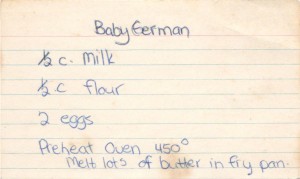 Baby German
½ c. milk
½ c flour
2 eggs
Preheat Oven 450°
Melt lots of butter in fry pan.